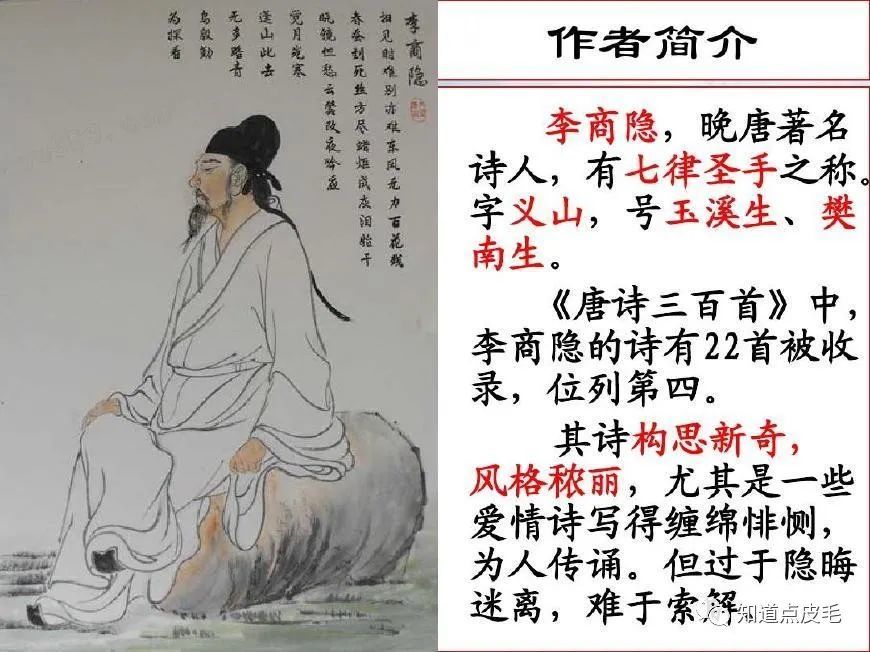 李商隐
相见时难别亦难东风无力百花残
春蚕到死丝方尽蜡炬成灰泪始干
晓镜但愁云鬓改夜吟应
觉月光寒
蓬山此去
无多路青
鸟殷勤
为探看
作者简介
李商隐，晚唐著名
诗人，有七律圣手之称。
字义山，号玉溪生、樊
南生。
《唐诗三百首》中，
李商隐的诗有22首被收
录，位列第四。
其诗构思新奇，
风格秾丽，尤其是一些
爱情诗写得缠绵悱恻，
为人传诵。但过于隐晦
迷离，难于索解。
知道点皮毛